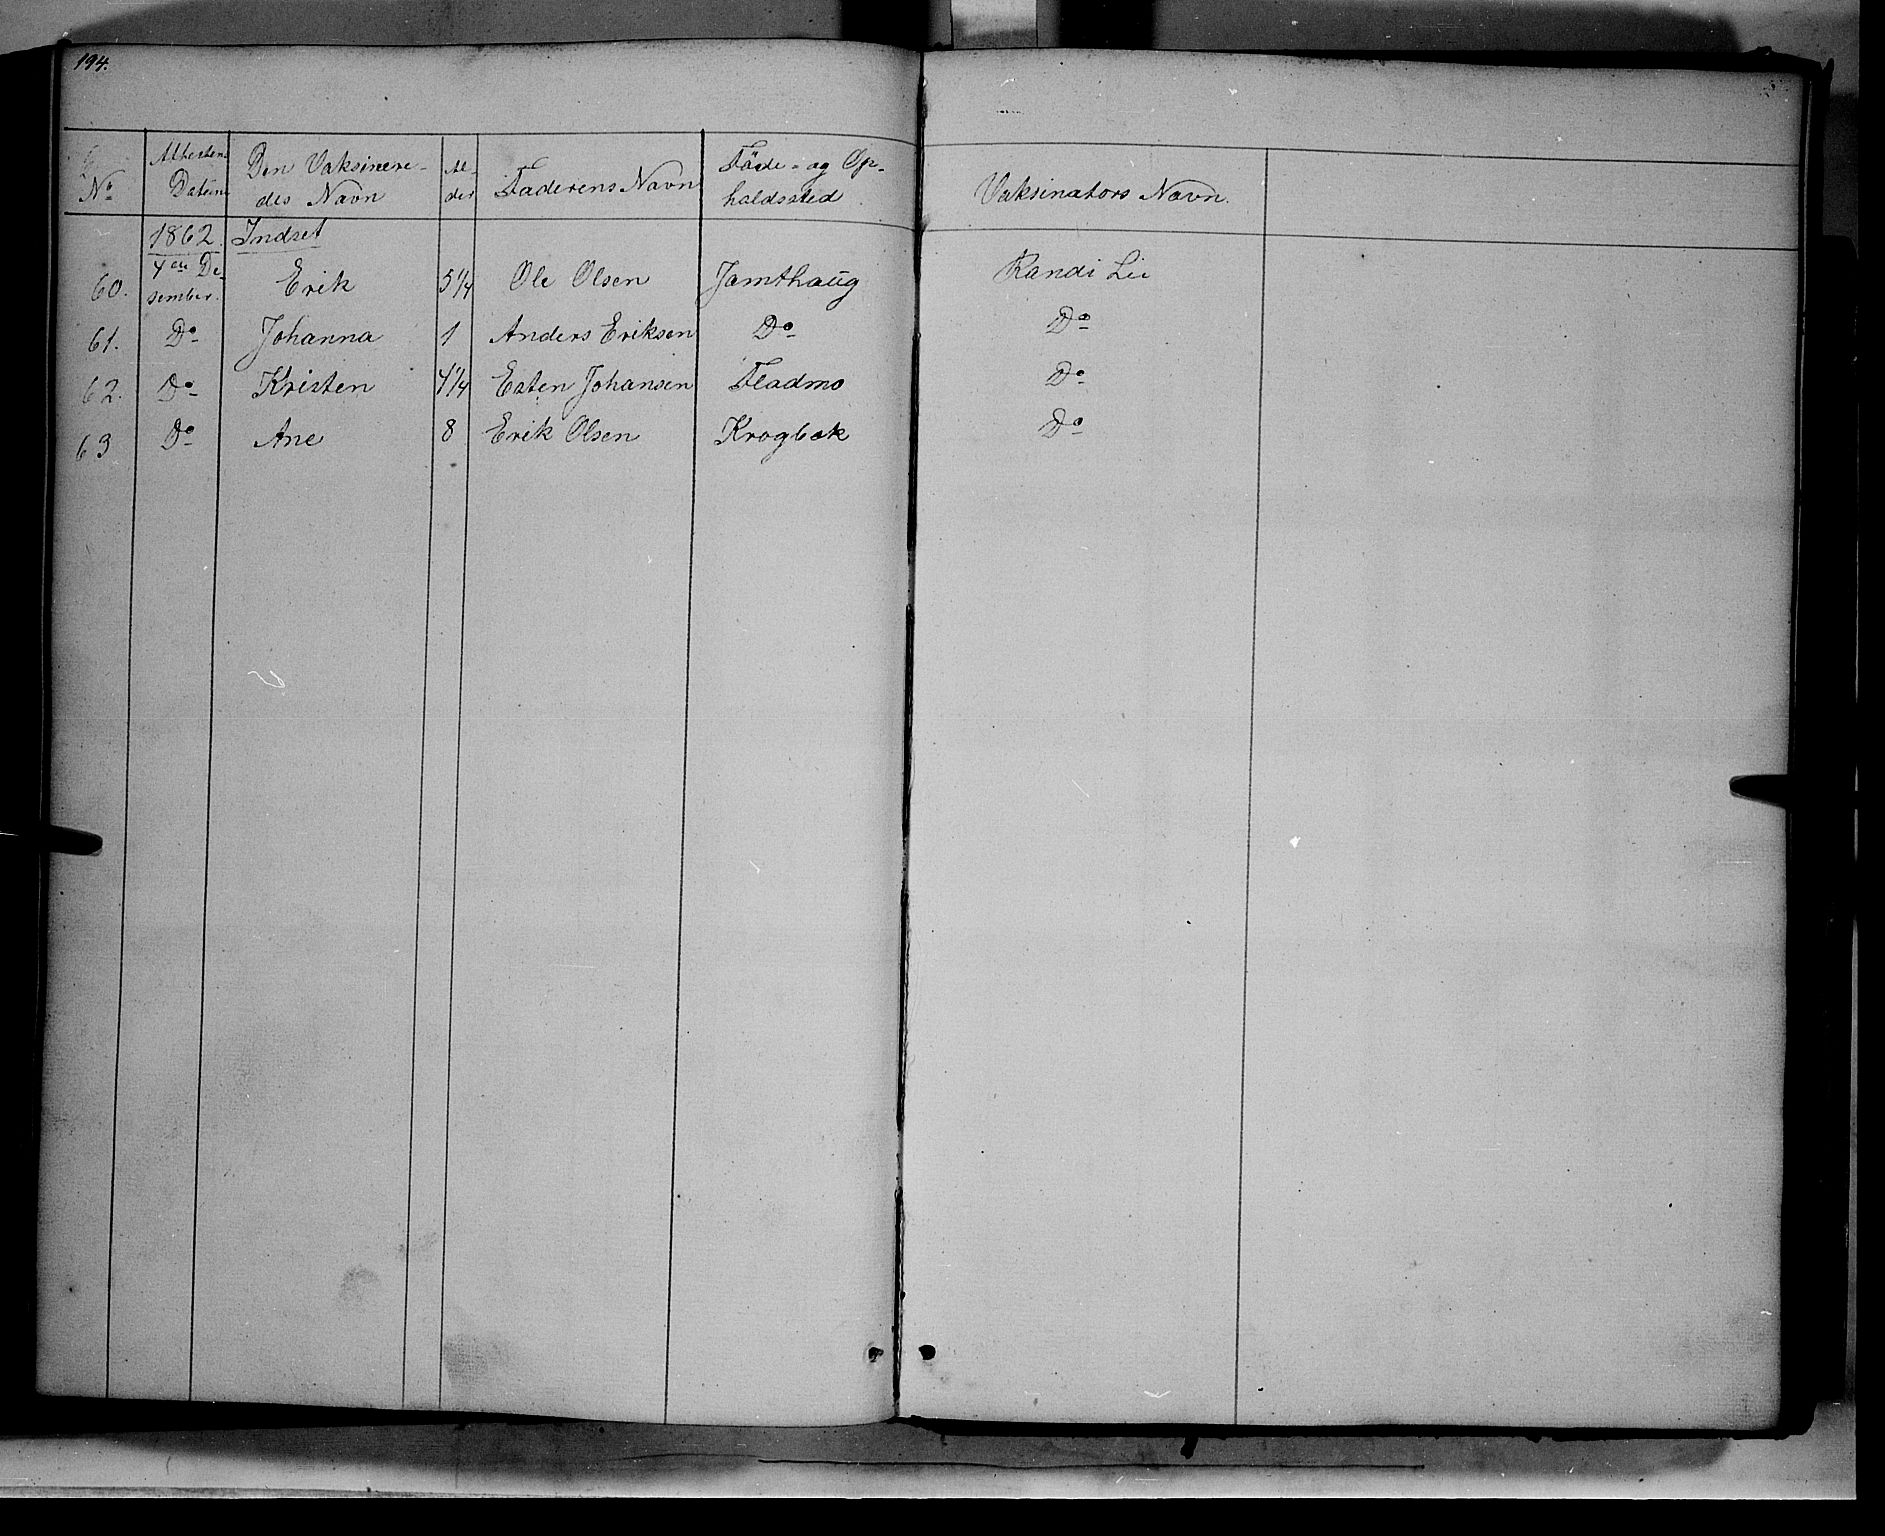 194.
No Attestens Datum Den Vaksinere- des Navn Al- der Faderens Navn Föde- og Op- holdssted Vaksinators Navn.
1862. Indset
60. 4de De- sember. Erik 5 1/4 Ole Olsen Jamthaug Randi Lie
61. Do Johanna 1 Anders Eriksen Do Do
62. Do Kristen 4 1/4 Esten Johansen Fladmo Do
63 Do Ane 8 Erik Olsen Krogbæk Do